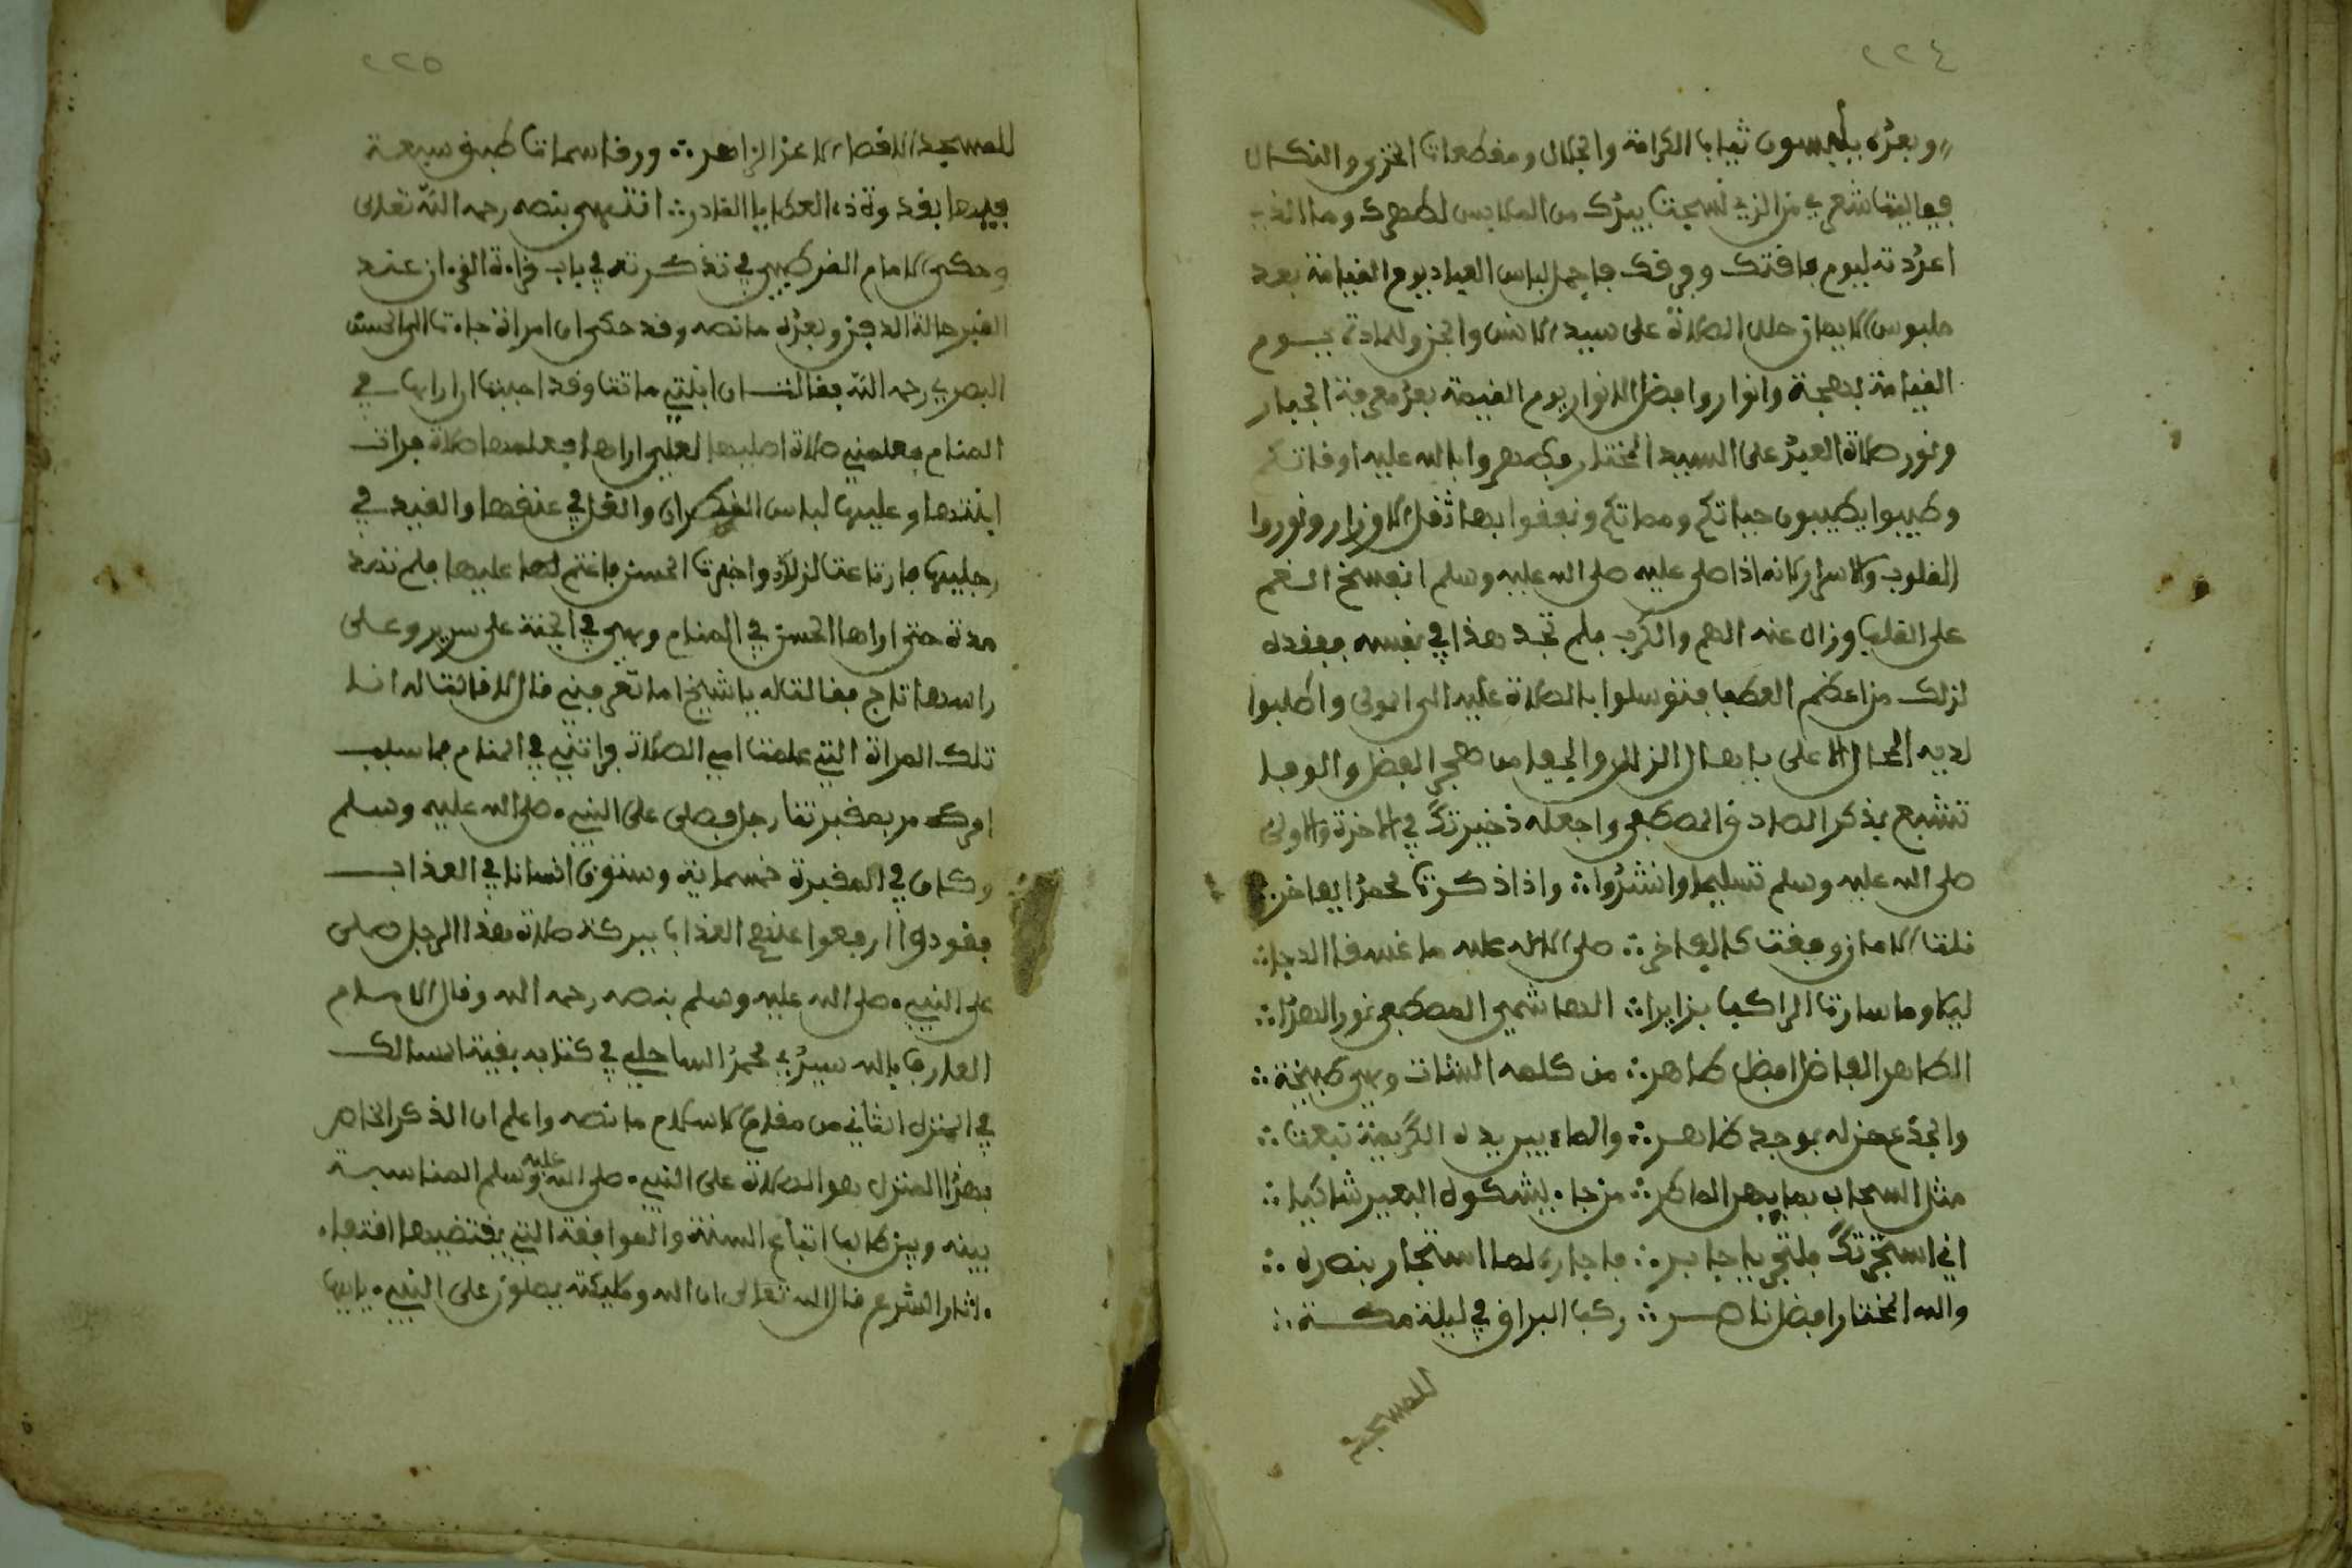 ٢٢٤
وبعزه يلبسون ثياب الكرامة والجلال ومقطعات الخزي والنكال
فياليت شعري من الزي نسجت بيدك من الملابس لطهرك وما الذي
اعددته ليوم فاقتك وفرقك فاجمل لباس العباد يوم القيامة بعد
ملبوس الايمان حلل الصلاة على سيد الانس والجن وللمادة يوم
القيامة بهجة وانوار وافضل الانوار يوم القيمة بعد معرفة الجبار
ونور صلاة العبد على السيد المختار فطهروا بالله عليه اوقاتكم
وطيبوا بطيبون حياتكم ومماتكم وتخففوا بها ثقل الاوزار ونوروا
القلوب والاسرار لانه اذا صلى عليه صلى الله عليه وسلم انفسخ الغم
على القلب وزال عنه الهم والكرب فلم تجد هذا في نفسه ففقده
لذلك من اعظم العطب فتوسلوا بالصلاة عليه الى المولى واطلبوا
لديه المحال الاعلى
تشبع بذكر الصادق المصطفى واجعله ذخيرتك في الاخرة والاولى
صلى الله عليه وسلم تسليما وانشدوا ∴ واذا ذكرت محمدا يفاخر ∴
نلت الامان وفقت كل فاخر ∴ صلى الاله عليه ما غسق الدجا ∴
ليلا وما سارت الركب بزايرا ∴ الهاشمي المصطفى نور الهدى ∴
الطاهر الفاضل افضل طاهر ∴ من كلمه الشات وهي طبيخة ∴
والجذع حن له بوجد ظاهر ∴ والماء بين يديه الكريمة نبعت ∴
مثل السحاب بماء يهر الماطر ∴ من جاء يشكوه البعير شاكيا ∴
اني استجرتك فلتجر ياجابر ∴ فاجاره لما استجار بنصره ∴
والله المختار افضل ناصر ∴ ركب البراق في ليلة مكة ∴
للمسجد
٢٢٥
للمسجد الاقصى الاعز الزاهر ∴ ورقا سماتا طبق سبعة
فيها بقدوة ذي العطايا القادر ∴ انتهى بنصه رحمه الله تعلى
وحكى الامام القرطبي في تذكرته في باب قراءة القرءان عند
القبر حالة الدفن وبعده ما نصه وقد حكى ان امراة جاءت الى الحسن
البصري رحمه الله فقالت ان ابنتي ماتت وقد احببت ان اراها في
المنام فعلمني صلاة اصليها لعلي اراها فعلمها صلاة فرات
ابنتها وعليها لباس القطران والغل في عنقها والقيد في
رجليها فارتاعت لذلك واخبرت الحسن فاغتم لها عليها فلم تمض
مدة حتى اراها الحسن في المنام وهي في الجنة على سرير وعلى
راسها تاج فقالت له يا شيخ اما تعرفني قال لا فقالت له انا
تلك المراة التي علمت امي الصلاة فراتني في المنام فما سبب
امرك مر بمقبرتنا رجل فصلى على النبيء صلى الله عليه وسلم
وكان في المقبرة خمسمائة وستون انسانا في العذاب
فنودوا ارفعوا عنهم العذاب ببركة صلاة هذا الرجل صلى
على النبيء صلى الله عليه وسلم بنصه رحمه الله وقال الامام
العارف بالله سيدي محمد الساحلي في كتابه بغية السالك
في المنزل الثاني من مقام الاسلام ما نصه واعلم ان الذكر الخاص
بهذا المنزل هو الصلاة على النبيء صلى الله عليه وسلم المناسبة
بينه وبين كمال اتباع السنة والموافقة التي يقتضيها اقتفاء
ءاثار الشرع قال الله تعالى ان الله وملئكته يصلون على النبيء يايها